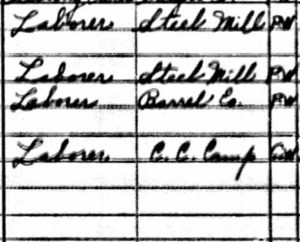 Laborer Steel Mill PW
Laborer Steel Mill PW
Laborer Barrel Co. PW
Laborer C. C. Camp GW